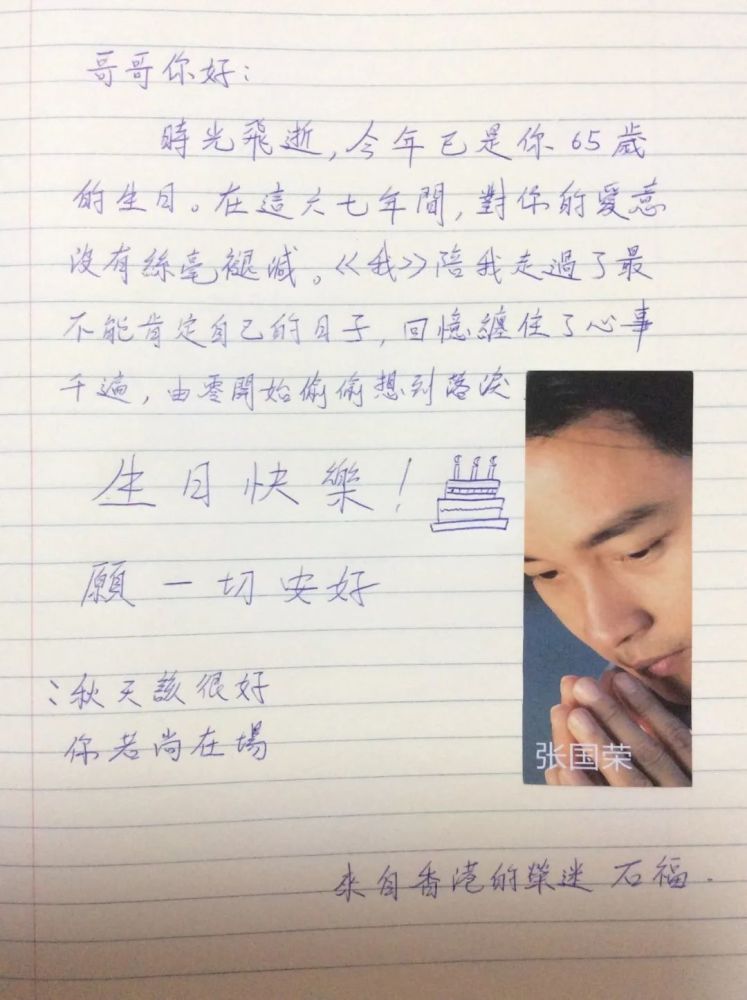 哥哥你好：
時光飛逝，今年已是你65歲
的生日。在這六七年間，對你的愛意
沒有絲毫褪減。《我》陪我走過了最
不能肯定自己的日子，回憶纏住了心事
千遍，由零開始偷偷想到落淚.
生日快樂！
願一切安好
：秋天該很好
你若尚在場
张国荣
來自香港的榮迷 石福.